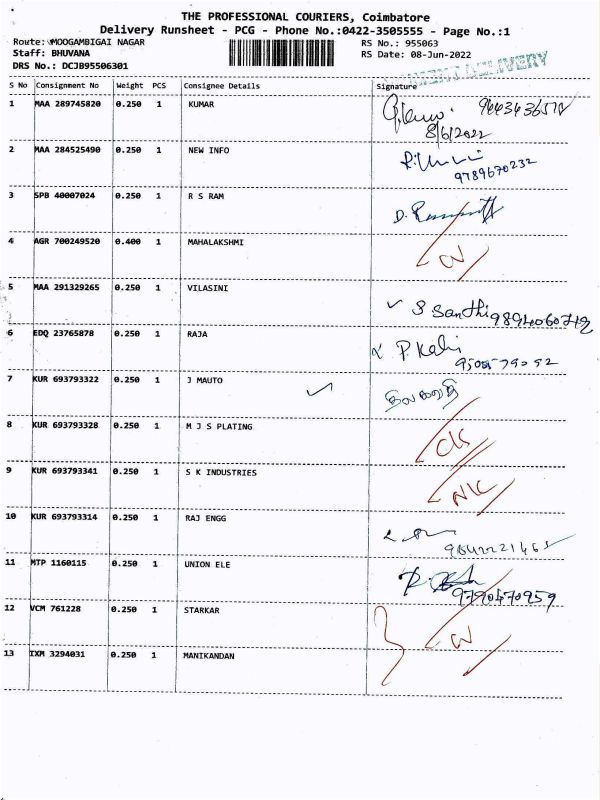 THE PROFESSIONAL COURIERS, Coimbatore
Delivery Runsheet - PCG - Phone No.:0422-3505555 - Page No.:1
Route: MOOGAMBIGAI NAGAR
RS No.: 955063
Staff: BHUVANA
RS Date: 08-Jun-2022
DRS No.: DCJB95506301
DELIVERY
S No Consignment No Weight PCS Consignee Details Signature
1 MAA 289745820 0.250 1 KUMAR
8/6/2022
2 MAA 284525490 0.250 1 NEW INFO
9789670232
3 SPB 40007024 0.250 1 R S RAM
4 AGR 700249520 0.400 1 MAHALAKSHMI
5 MAA 291329265 0.250 1 VILASINI
S Santhi 9894060712
6 EDQ 23765878 0.250 1 RAJA
7 KUR 693793322 0.250 1 J MAUTO
8 KUR 693793328 0.250 1 M J S PLATING
9 KUR 693793341 0.250 1 S K INDUSTRIES
10 KUR 693793314 0.250 1 RAJ ENGG
11 MTP 1160115 0.250 1 UNION ELE
9790470959
12 VCM 761228 0.250 1 STARKAR
13 IXM 3294031 0.250 1 MANIKANDAN